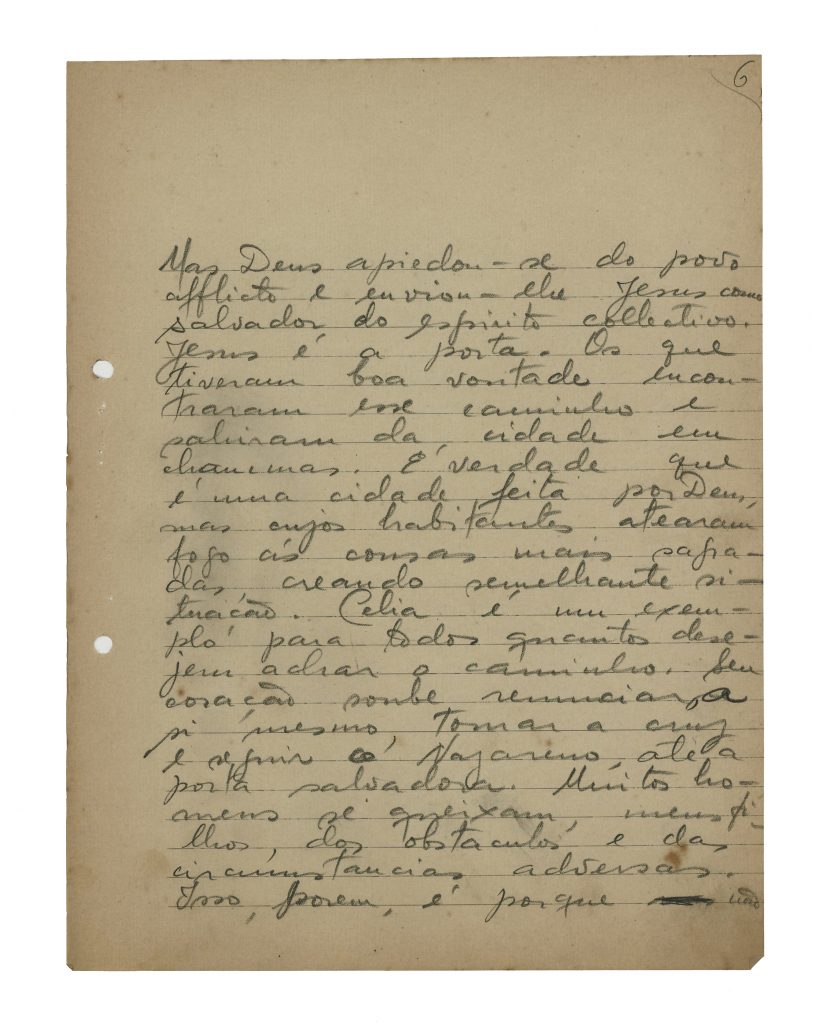 6
Mas Deus apiedou-se do povo
afflicto e enviou-lhe Jesus como
salvador do espirito collectivo.
Jesus é a porta. Os que
tiveram boa vontade encon-
traram esse caminho e
sahiram da cidade em
chammas. É verdade que
é uma cidade feita por Deus,
mas cujos habitantes atearam
fogo ás cousas mais sagra-
das, creando semelhante si-
tuação. Celia é um exem-
plo para todos quantos dese-
jem achar o caminho. Seu
coração soube renunciar a
si mesmo, tomar a cruz
e seguir o Nazareno, até a
porta salvadora. Muitos ho-
mens se queixam, meus fi-
lhos, dos obstaculos e das
circumstancias adversas.
Isso, porem, é porque não